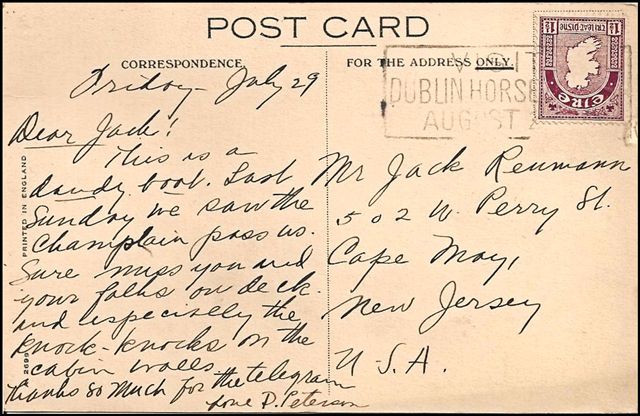 POST CARD
CORRESPONDENCE.
FOR THE ADDRESS ONLY.
VISIT
DUBLIN HORSE
AUGUST
1½ TRÍ LEAT PINGNE 1½
EIRE
Friday - July 29
Dear Jack!
This is a
dandy boat. Last
Sunday we saw the
Champlain pass us.
Sure miss you and
your folks on deck.
and especially the
knock-knocks on the
cabin walls.
Thanks so much for the telegram
D. Peterson
Mr Jack Reumann
502 W. Perry St.
Cape May,
New Jersey
U.S.A.
PRINTED IN ENGLAND